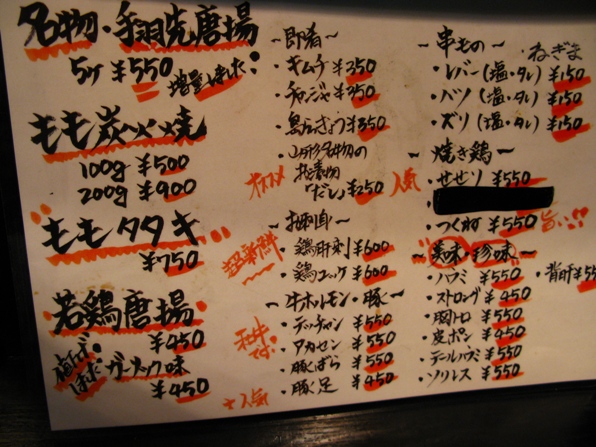 名物・手羽先唐場
5ヶ ¥550
増量しました!
もも炭火焼
100g ¥500
200g ¥900
ももタタキ
¥750
若鶏唐場
¥450
ガーリック味
¥450
～即肴～
・キムチ ¥350
・チャンジャ ¥350
・鳥ぶぎょう ¥350
・山形名物の
オススメ
お漬物
「だし」 ¥250
人気
～お刺身～
超新鮮
・鶏肝刺 ¥600
・鶏ユッケ ¥600
～牛ホルモン・豚～
・テッチャン ¥550
・アカセン ¥550
・豚ばら ¥550
・豚足 ¥450
和牛です。
人気
～串もの～
・ねぎま
・レバー(塩・タレ) ¥150
・ハツ(塩・タレ) ¥150
・ズリ(塩・タレ) ¥150
～焼き鶏～
・せせり ¥550
・つくね ¥550
旨い!!
～美味 珍味～
・ハラミ ¥550
・背肝 ¥55
・ストロング ¥450
・胸トロ ¥550
・皮ポン ¥450
・テールハラミ ¥550
・ソリレス ¥550